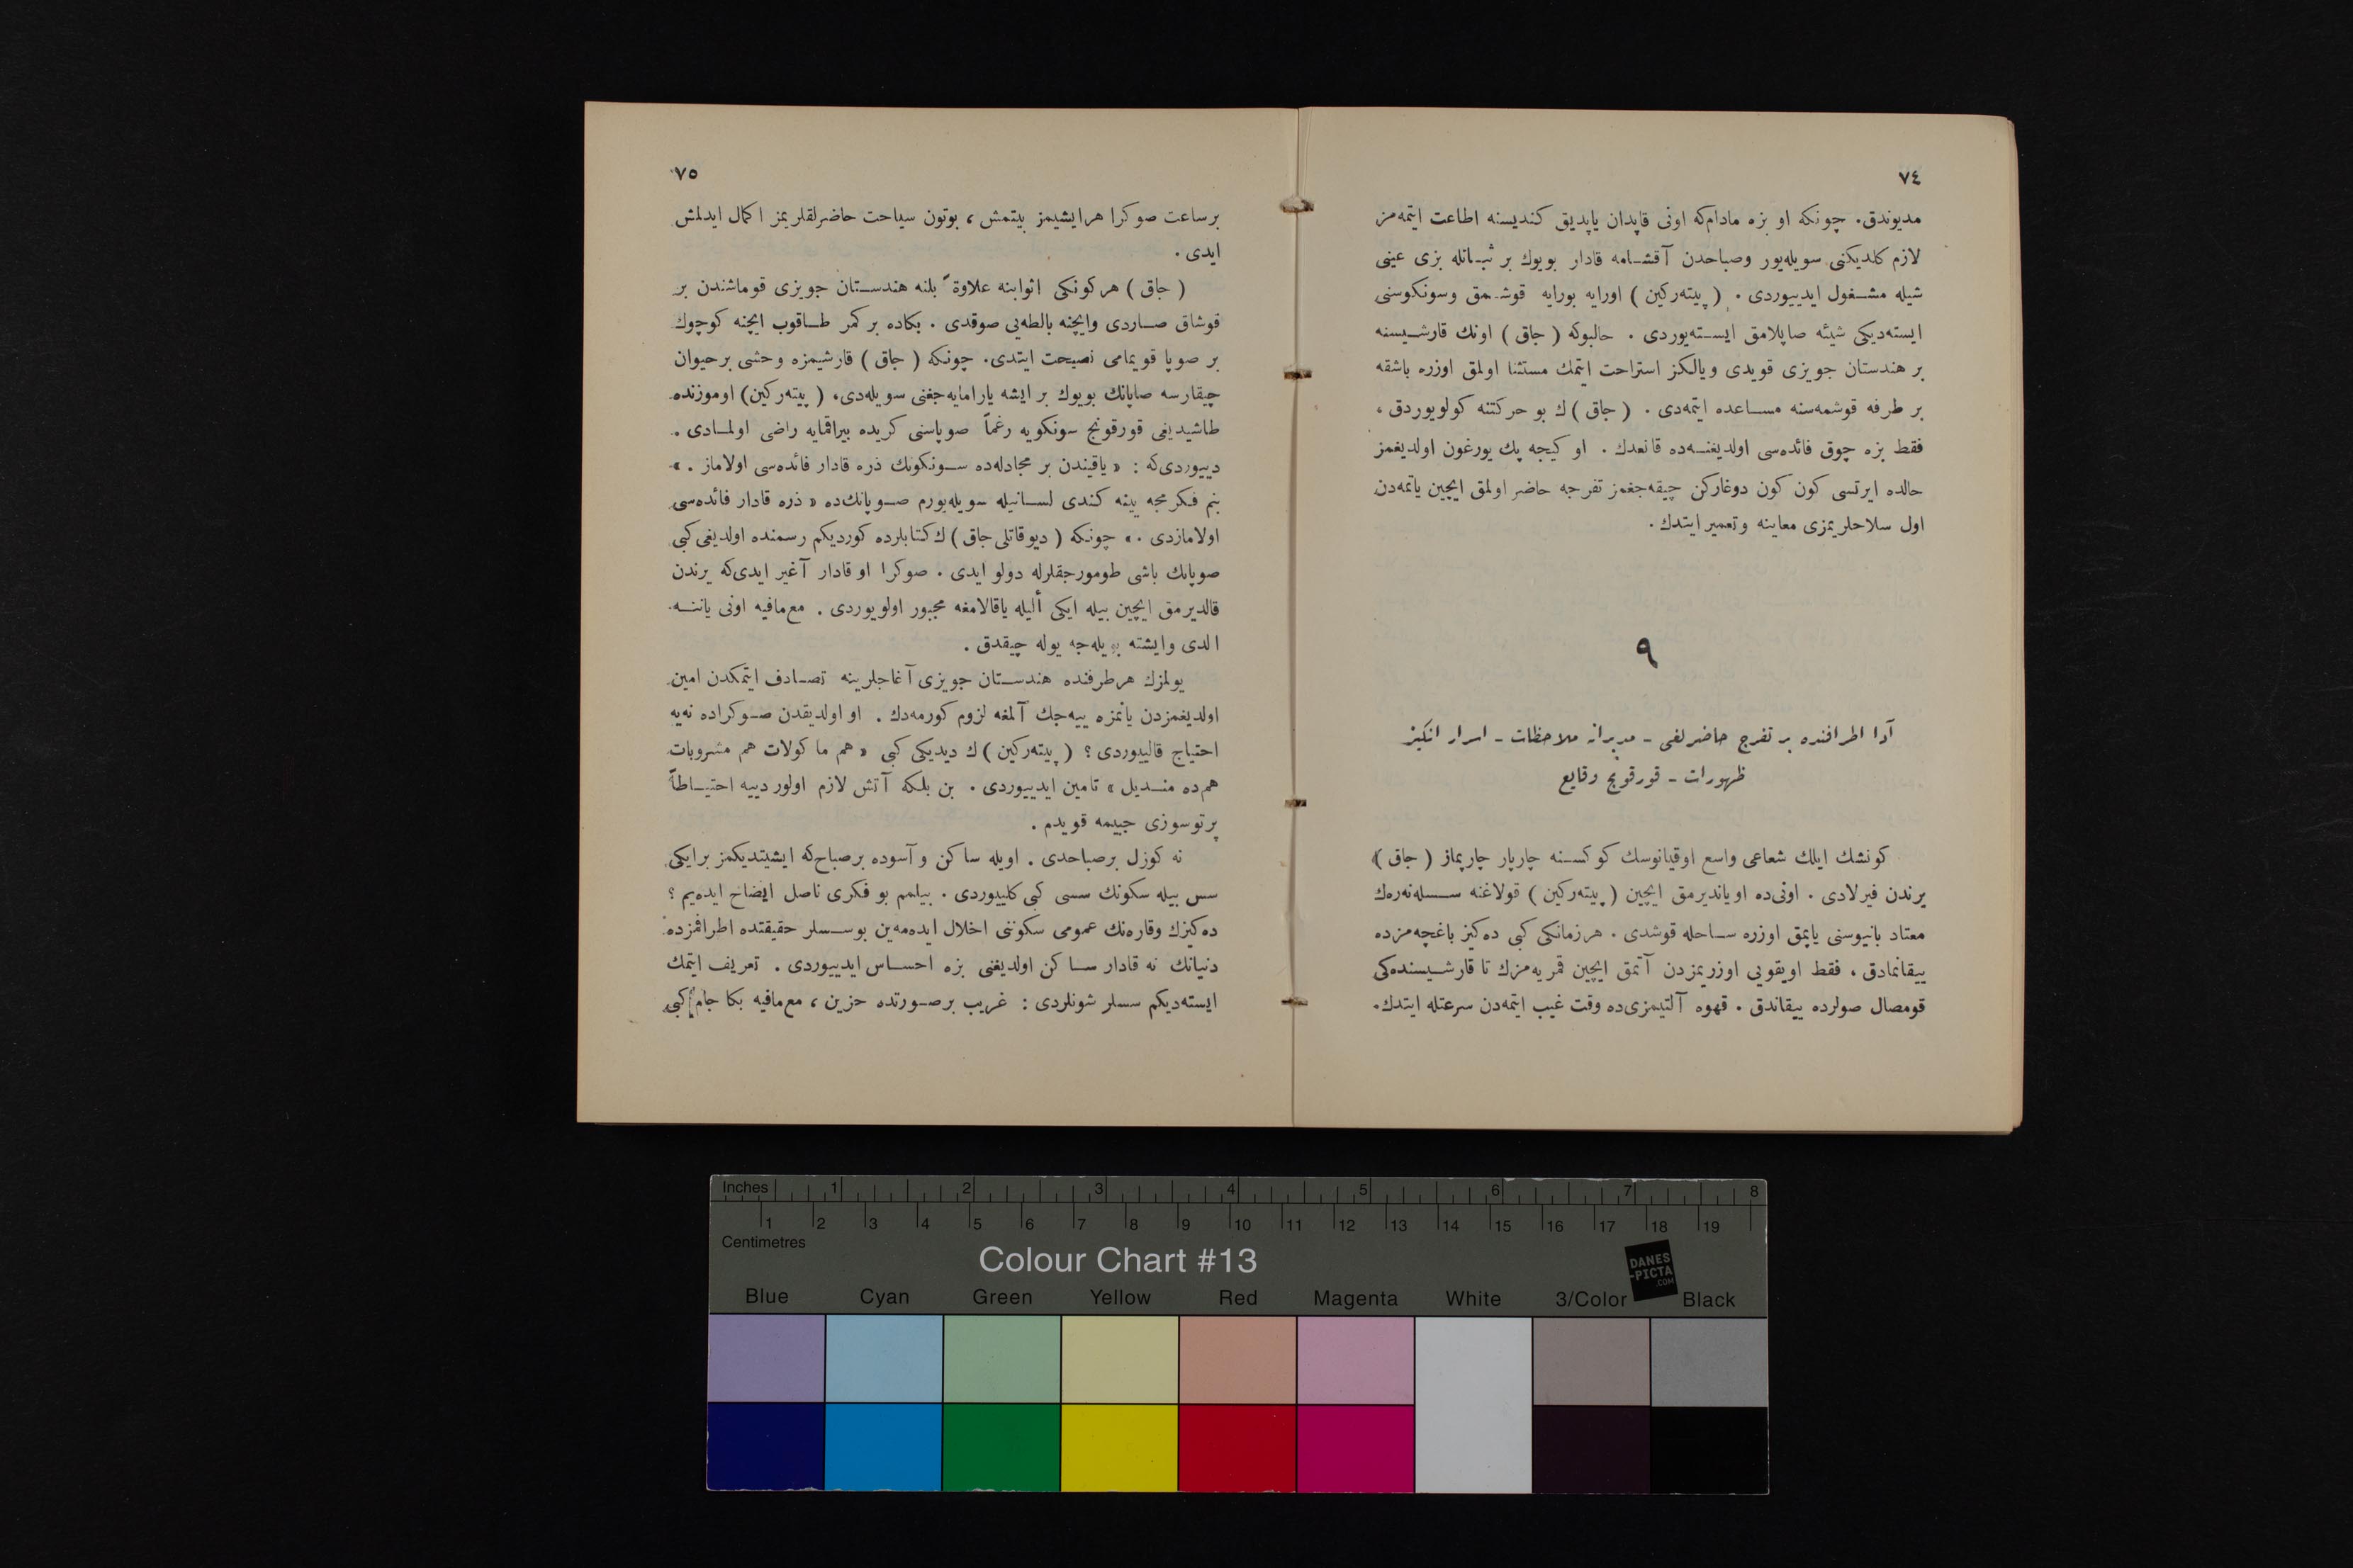 ٧٤
مديوندق. چونكه او بزه مادام‌كه اونى قاپدان ياپديق كنديسنه اطاعت ايتمه‌مز
لازم كلديكنى سويله‌يور وصباحدن آقشامه قادار بويوك بر ثباتله بزى عينى
شيله مشغول ايدييوردى . ( پيتەركين ) اورايه بورايه قوشمق وسونكوسنى
ايسته‌ديكى شيئه صاپلامق ايسته‌يوردى . حالبوكه ( جاق ) اونك قارشيسنه
بر هندستان جويزى قويدى ويالكز استراحت ايتمك مستثنا اولمق اوزره باشقه
بر طرفه قوشمه‌سنه مساعده ايتمه‌دى . ( جاق ) ك بو حركتنه كولويوردق ،
فقط بزه چوق فائده‌سى اولديغنه‌ده قانعدك . او كيجه پك يورغون اولديغمز
حالده ايرتسى كون كون دوغاركن چيقه‌جغمز تفرجه حاضر اولمق ايچين ياتمه‌دن
اول سلاحلريمزى معاينه وتعمير ايتدك .
٩
آدا اطرافنده بر تفرج حاضرلغى - مدبرانه ملاحظات - اسرار انكيز
ظهورات - قورقونج وقايع
كونشك ايلك شعاعى واسع اوقيانوسك كوكسنه چارپار چارپماز ( جاق )
يرندن فيرلادى . اونى‌ده اوياندیرمق ايچين ( پيتەركين ) قولاغنه سسله‌نه‌رەك
معتاد بانيوسنى ياپمق اوزره ساحله قوشدى . هرزمانكى كبى ده‌كيز باغچه‌مزده
ييقانمادق ، فقط اويقويى اوزريمزدن آتمق ايچين قمريه‌مزك تا قارشيسنده‌كى
قومصال صولرده ييقاندق . قهوه آلتيمزى‌ده وقت غيب ايتمه‌دن سرعتله ايتدك.
٧٥
برساعت صوكرا هرايشيمز بيتمش ، بوتون سياحت حاضرلقلريمز اكمال ايدلمش
ايدى .
( جاق ) هركونكى اثوابنه علاوةً بلنه هندستان جويزى قوماشندن بر
قوشاق صاردى وايچنه بالطه‌يى صوقدى . بكاده بر كمر طاقوب ايچنه كوچوك
بر صوپا قويمامى نصيحت ايتدى. چونكه ( جاق ) قارشيمزه وحشى برحيوان
چيقارسه صاپانك بويوك بر ايشه يارامايه‌جغنى سويله‌دى، ( پيتەركين ) اوموزنده
طاشيديغى قورقونج سونكويه رغماً صوپاسنى كريده بيراقمايه راضى اولمادى .
دييوردى‌كه : « ياقيندن بر مجادله‌ده سونكونك ذره قادار فائده‌سى اولاماز . »
بنم فكرمجه يينه كندى لسانيله سويله‌يورم صوپانك‌ده « ذره قادار فائده‌سى
اولامازدى . » چونكه ( ديوقاتلى جاق ) ك كتابلرده كورديكم رسمنده اولديغى كبى
صوپانك باشى طومورجقلرله دولو ايدى . صوكرا او قادار آغير ايدى‌كه يرندن
قالديرمق ايچين بيله ايكى أليله ياقالامغه مجبور اولويوردى . مع‌مافيه اونى ياننه
الدى وايشته بويله‌جه يوله چيقدق .
يولمزك هرطرفنده هندستان جويزى آغاجلرينه تصادف ايتمكدن امين
اولديغمزدن يانمزه ييه‌جك آلمغه لزوم كورمه‌دك . او اولديقدن صوكراده نه‌يه
احتياج قالييوردى ؟ ( پيتەركين ) ك ديديكى كبى « هم ماكولات هم مشروبات
هم‌ده منديل » تامين ايدييوردى . بن بلكه آتش لازم اولور دييه احتياطاً
پرتوسوزى جيبمه قويدم .
نه كوزل برصباحدى . اويله ساكن و آسوده برصباح‌كه ايشيتديكمز برايكى
سس بيله سكونك سسى كبى كلييوردى . بيلمم بو فكرى ناصل ايضاح ايده‌يم ؟
ده‌كيزك وقاره‌نك عمومى سكوننى اخلال ايده‌مه‌ين بوسسلر حقيقتده اطرافمزده
دنيانك نه قادار ساكن اولديغنى بزه احساس ايدييوردى . تعريف ايتمك
ايسته‌ديكم سسلر شونلردى : غريب برصورتده حزين ، مع‌مافيه بكا جام كبى
Inches 1 2 3 4 5 6 7 8
1 2 3 4 5 6 7 8 9 10 11 12 13 14 15 16 17 18 19
Centimetres
Colour Chart #13
DANES
-PICTA
.COM
Blue Cyan Green Yellow Red Magenta White 3/Color Black